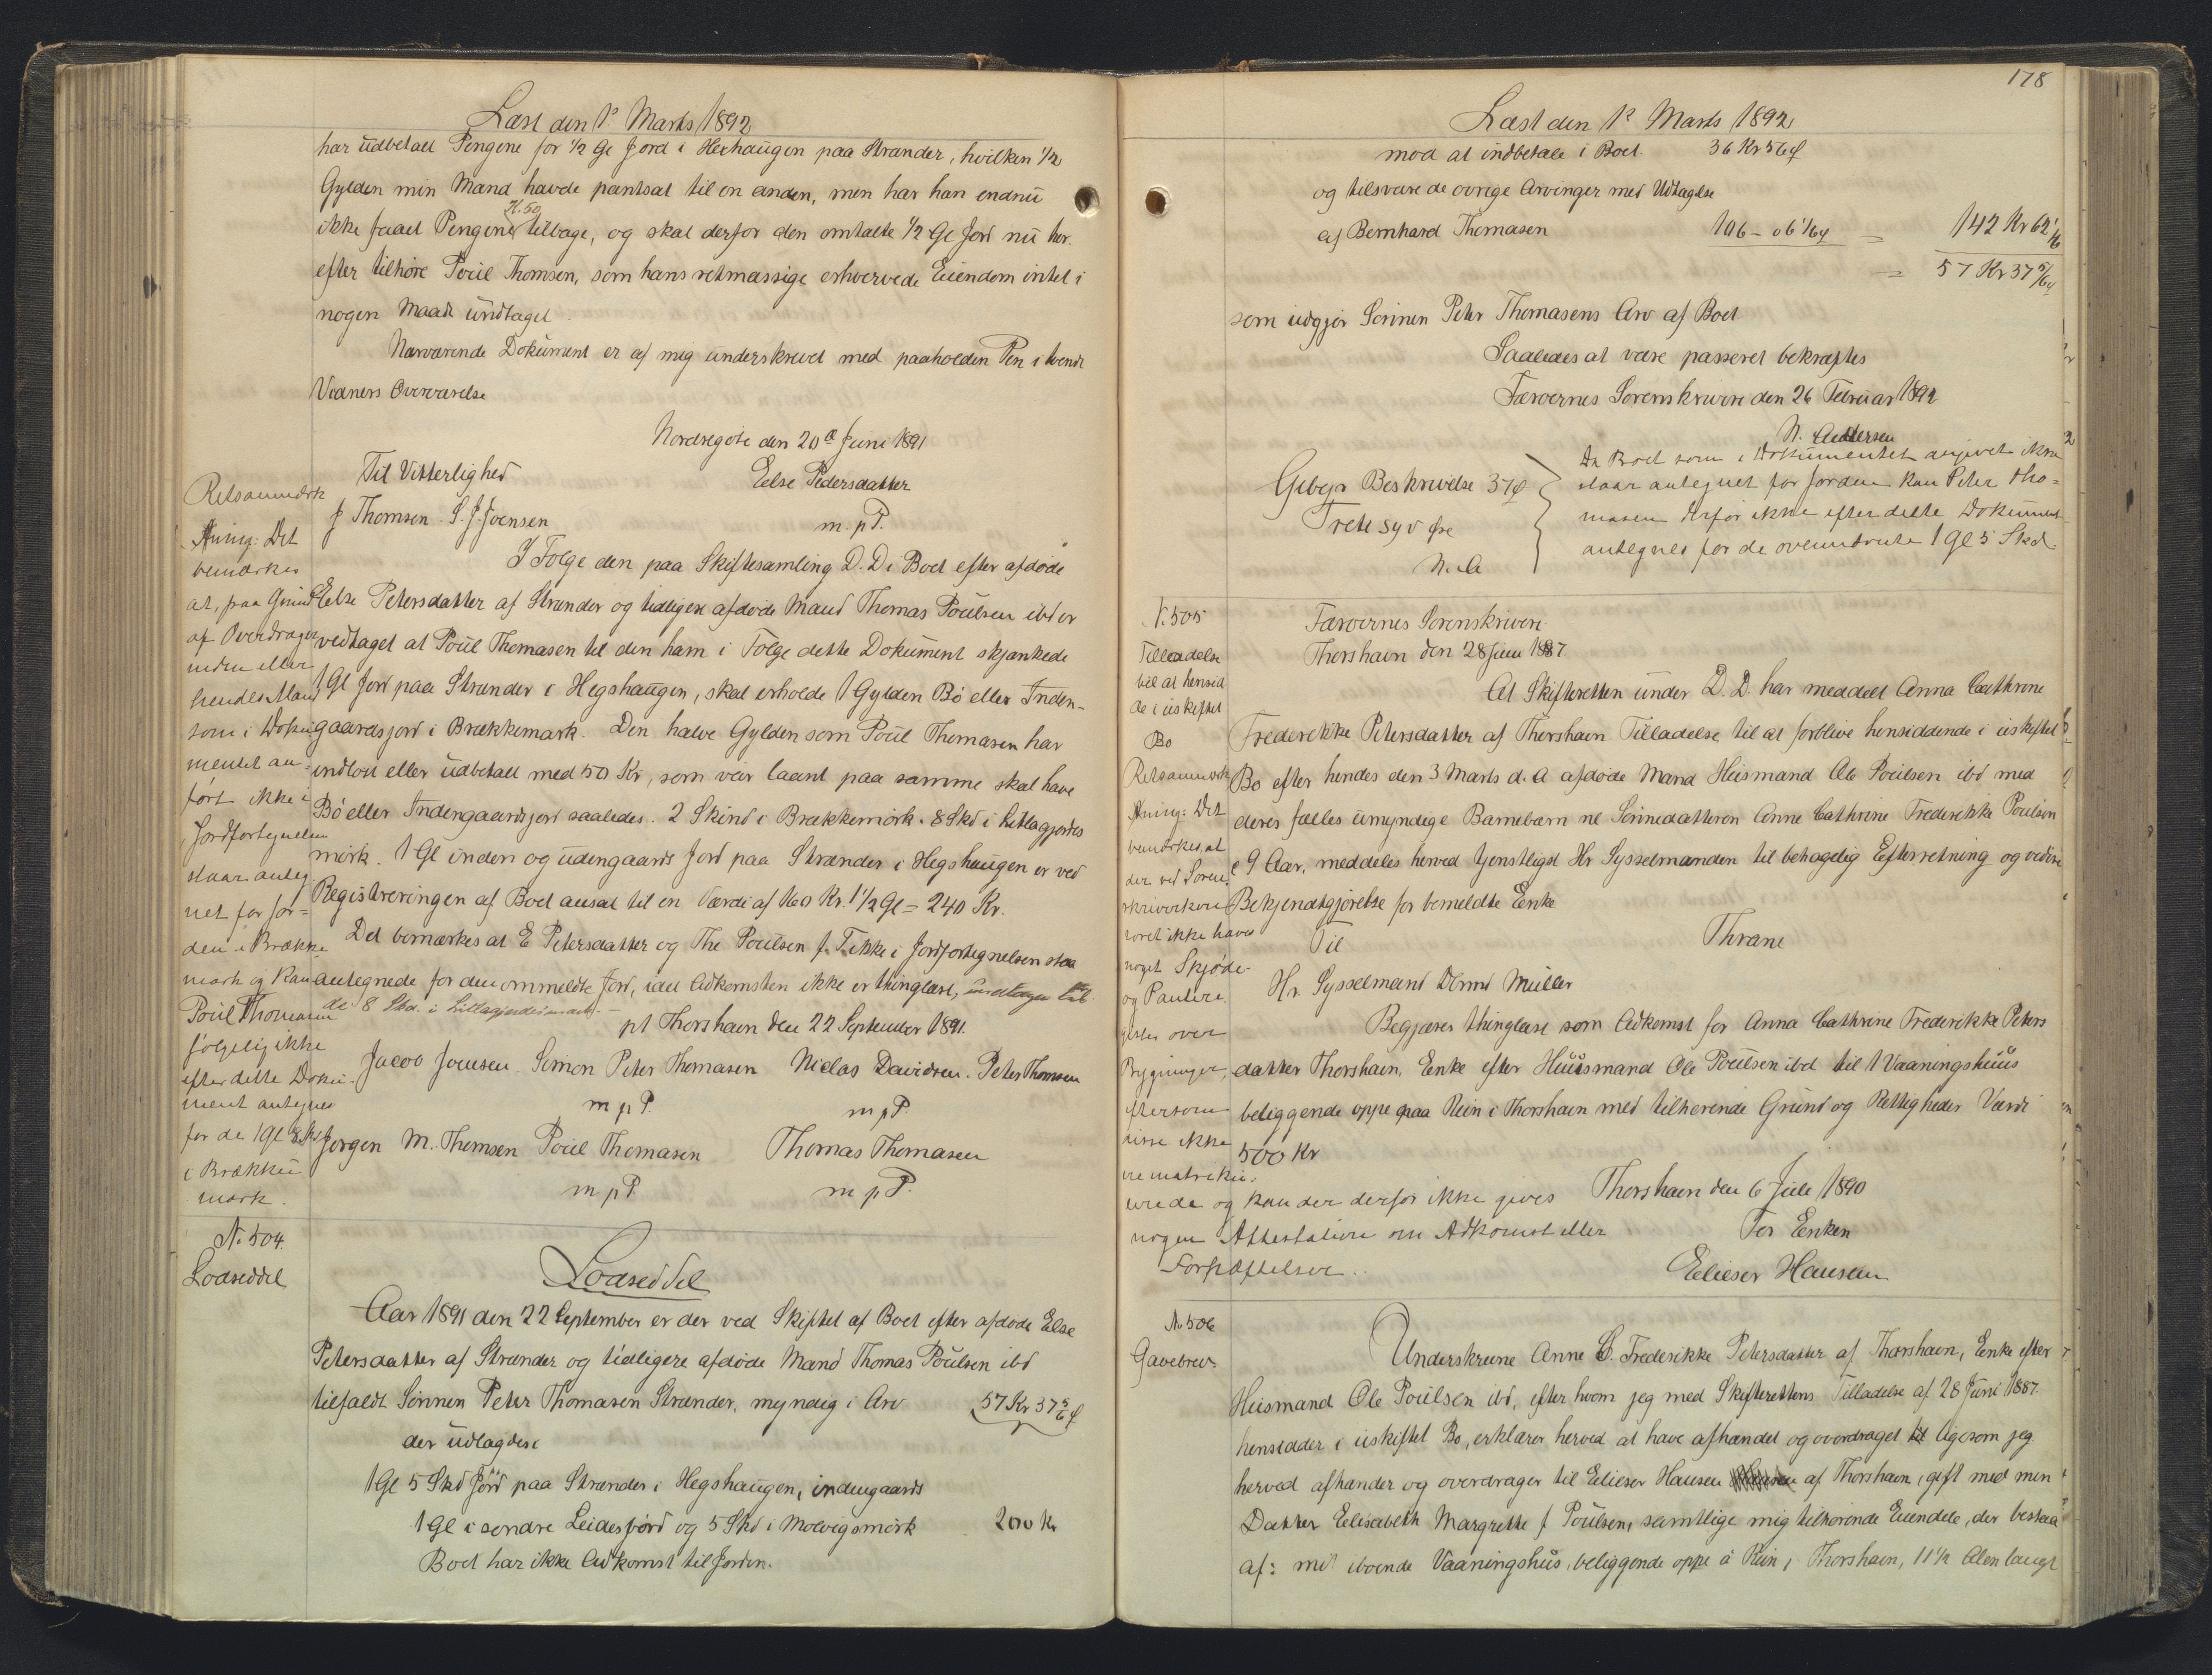 Læst den 1e Marts 1892
har udbetalt Pengene for 1/2 Gl Jord i Hexhaugen paa Strænder, hvilken 1/2
Gylden min Mand havde pantsat til en anden, men har han endnu
K. 50
ikke faaet Pengene tilbage, og skal derfor den omtalte 1/2 Gl Jord nu her-
efter tilhøre Poul Thomsen, som hans retmæssige erhvervede Eiendom intet i
nogen Maade undtaget.
Nærværende Dokument er af mig underskrevet med paaholden Pen i tvende
Vidners Overværelse
Nordregøte den 20de Juni 1891
Til Vitterlighed
Else Pedersdatter
J Thomsen. S. J. Joensen
m. p P.
I Følge den paa Skiftesamling D. D. i Boet efter afdøde
Else Petersdatter af Strænder og tidligere afdøde Mand Thomas Poulsen ibd er
vedtaget at Poul Thomasen til den ham i Følge dette Dokument skjænkede
1 Gl Jord paa Strænder i Hegshaugen, skal erholde 1 Gylden Bø eller Inden-
gaardsjord i Brækkemørk. Den halve Gylden som Poul Thomasen har
indløst eller udbetalt med 50 Kr, som var laant paa samme skal have
Bø eller Indengaardsjord saaledes. 2 Skind i Brækkemørk. 8 Skd i Litlagjordes
mørk. 1 Gl inden og udengaards Jord paa Strænder i Hegshaugen er ved
Registreringen af Boet ansat til en Værdi af 160 Kr. 1 1/2 Gl = 240 Kr.
Det bemærkes at E Petersdatter og Ths Poulsen f. T. ikke i Jordfortegnelsen staa
antegnede for den ommeldte Jord, idet Adkomsten ikke er thinglæst, undtagen til
de 8 Skd. i Litlagjordesmørk. -
pt Thorshavn den 22 September 1891.
Jacob Joensen. Simon Peter Thomasen Niclas Davidsen. Peter Thomsen
m p P. m p P.
Jørgen M. Thomsen Poul Thomasen Thomas Thomasen
m p P. m p P.
Retsanmærk
ning: Det
bemærkes
at, paa Grund
af Overdrager
inden eller
hendes Mand
som i Doku
mentet an-
ført ikke i
Jordfortegnelsen
staar anteg
net for Jor-
den i Brække
mørk og kan
Poul Thomasen
følgelig ikke
efter dette Doku-
ment antegnes
for de 1 Gl 8 Skd
i Brække
mørk.
N. 504.
Lodseddel
Lodseddel
Aar 1891 den 22 September er der ved Skiftet af Boet efter afdøde Else
Petersdatter af Strænder og tidligere afdøde Mand Thomas Poulsen ibd
tilfaldt Sønnen Peter Thomasen Strænder, myndig i Arv 57 Kr 37 5/6 ø
der udlagdes
1 Gl 5 Skd Jord paa Strænder i Hegshaugen, indengaards
1 Gl i søndre Leidesførd og 5 Skd i Molvigsmørk 200 Kr
Boet har ikke Adkomst til Jorden.
178
Læst den 1e Marts 1892
mod at indbetale i Boet. 36 Kr 56 ø
og tilsvare de øvrige Arvinger med Udtagelse
af Bernhard Thomasen 106 - 06 1/6 ø = 142 Kr 62 1/6
= 57 Kr 37 5/6 ø
som udgjør Sønnen Peter Thomasens Arv af Boet
Saaledes at være passeret bekræftes
Færøernes Sorenskriveri den 26 Februar 1892
N. Andersen
Gebyr Beskrivelse 37 ø
Treti syv Øre
N. A
Da Boet som i Dokumentet angivet ikke
staar antegnet for Jorden kan Peter Tho-
masen derfor ikke efter dette Dokument
antegnes for de ovenndnte 1 Gl 5 Skd.
N. 505
Tilladelse
til at hensid
de i uskiftet
Bo
Færøernes Sorenskriveri
Thorshavn den 28 Juni 1887.
At Skifteretten under D. D. har meddelt Anna Cathrine
Frederikke Petersdatter af Thorshavn Tilladelse til at forblive hensiddende i uskiftet
Bo efter hendes den 3 Marts d. A afdøde Mand Huusmand Ole Poulsen ibd med
deres fælles umyndige Barnebarn nl Sønnedatteren Anne Cathrine Frederikke Poulsen
c 9 Aar, meddeles herved tjenstligst Hr Sysselmanden til behagelig Efterretning og videre
Bekjendtgjørelse for bemeldte Enke
Thrane
Til
Hr. Sysselmand Müller
Begjæres thinglæst som Adkomst for Anna Cathrine Frederikke Peters
datter Thorshavn, Enke efter Huusmand Ole Poulsen ibd til 1 Vaaningshuus
beliggende oppe paa Rein i Thorshavn med tilhørende Grund og Rettigheder Værdi
500 Kr
Thorshavn den 6 Juli 1890
For Enken
Elieser Hansen
Retsanmærk
ning: Det
bemærkes, at
der ved Soren-
skriverkon
toret ikke haves
noget Skjøde-
og Pantere
gister over
Bygninger,
eftersom
disse ikke
ere matriku-
lerede og kan der derfor ikke gives
nogen Attestation om Adkomst eller
Forhæftelser.
N. 506
Gavebrev.
Underskrevne Anne C. Frederikke Petersdatter af Thorshavn, Enke efter
Huismand Ole Poulsen ibd, efter hvem jeg med Skifterettens Tilladelse af 28 Juni 1887.
hensidder i uskiftet Bo, erklærer herved at have afhændet og overdraget til ligesom jeg
herved afhænder og overdrager til Elieser Hansen af Thorshavn, gift med min
Datter Elisabeth Margrethe f Poulsen, samtlige mig tilhørende Eiendele, der bestaa
af: mit iboende Vaaningshus, beliggende oppe á Rein i Thorshavn, 11 1/2 Alen langt